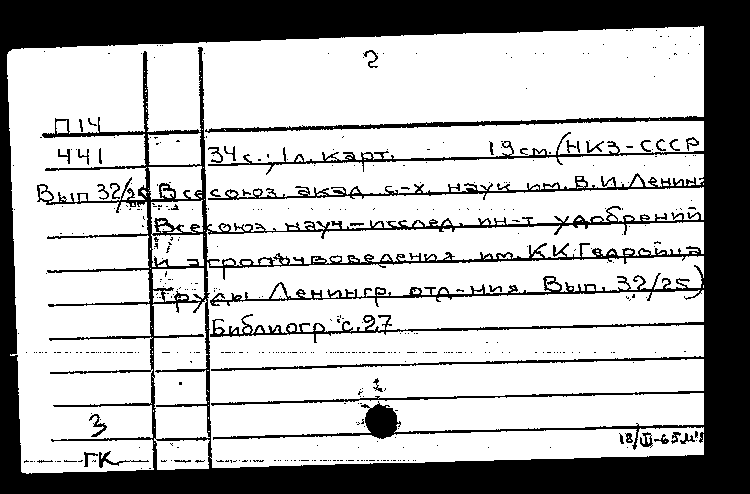 2
П14
441 34 с.; 1 л. карт. 19 см. (НКЗ-СССР
Вып 32/25 Всесоюз. акад. с-х. наук им. В.И. Ленина
Всесоюз. науч.-исслед. ин-т удобрений
и агропочвоведения им. К.К. Гедройца
Труды Ленингр. отд-ния. Вып. 32/25)
Библиогр. с. 27
3
ГК
18/III-65